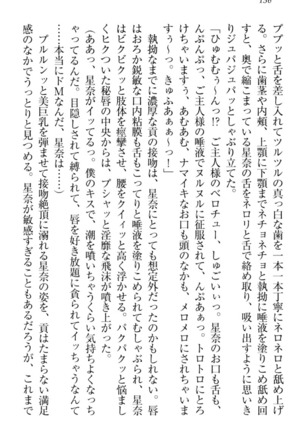 136
ププッと舌を差し入れてツルツルの真っ白な歯を一本一本丁寧にネロネロと舐め上げ
る。さらに歯茎や内頬、上顎に下顎までネチョネチョと執拗に唾液を塗りこめ舐め回
すと、奥で縮こまっている星奈の舌をネロリと舌で絡め取り、吸い出すように思いき
りジュパジュパッとしゃぶり立てる。
「ひゅむぅぅ〜んっ!? ご主人様のベロチュー、しゅごいぃっ。星奈のお口も舌も、
んぷんぷっ、ご主人様の唾液でヌルヌルに征服されて、んぷあぁっ。トロトロにとろ
けちゃいますぅ、あむあむ、ナマイキなお口も頭のなかも、メロメロにされちゃいま
すぅぅ、きゅふあぁぁ〜っ！」
執拗なまでに濃厚な貢の接吻は、星奈にとっても想定外だったのかもしれない。唇
はおろか鋭敏な口内粘膜も舌もこってりと唾液を塗りこめられてむしゃぶられ、星奈
はビクビクッと肢体を痙攣させ、腰をクイィッと高く浮かせる。パクパクッと悩まし
くヒクついた秘唇の中央からは、プシャプシャッと淫靡な飛沫が噴き上がった。
（ああっ、星奈がイッてるっ。僕のキスで、潮を噴いちゃうくらい気持ちよくなっ
てくれてるんだっ。目隠しされて縛られて、唇を好き放題に貪られてイッちゃうなんて
……本当にドＭなんだね、星奈は……）
ブルルンッと美巨乳を弾ませて接吻絶頂に溺れる星奈の姿を、貢はたまらない満足
感のなかでうっとりと見つめる。星奈が敏感すぎることもあるだろうが、これまで